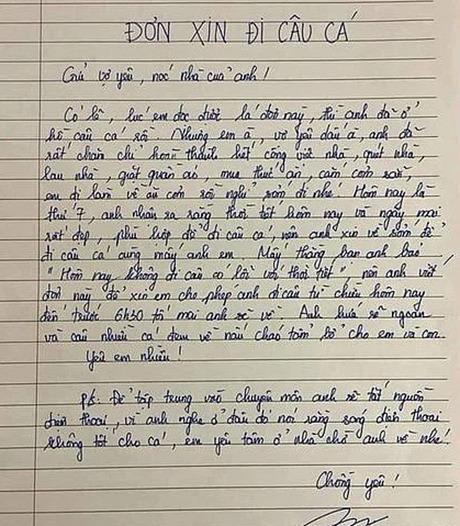 ĐƠN XIN ĐI CÂU CÁ
Gửi vợ yêu, nóc nhà của anh!
Có lẽ, lúc em đọc được lá đơn này, thì anh đã ở
hồ câu cá rồi. Nhưng em à, vợ yêu dấu à, anh đã
rất chăm chỉ hoàn thành hết công việc nhà, quét nhà,
lau nhà, giặt quần áo, mua thức ăn, cắm cơm sẵn,
em đi làm về ăn cơm rồi nghỉ sớm đi nhé! Hôm nay là
thứ 7, anh nhận ra rằng thời tiết hôm nay và ngày mai
rất đẹp, phù hợp để đi câu cá, nên anh xin về sớm để
đi câu cá cùng mấy anh em. Mấy thằng bạn anh bảo
"Hôm nay không đi câu có lỗi với thời tiết", nên anh viết
đơn này để xin em cho phép anh đi câu từ chiều hôm nay
đến trước 6h30 tối mai anh sẽ về. Anh hứa sẽ ngoan
và câu nhiều cá đem về nấu cháo tẩm bổ cho em và con.
Yêu em nhiều!
P/s: Để tập trung vào chuyên môn anh sẽ tắt nguồn
điện thoại, vì anh nghe ở đâu đó nói rằng sóng điện thoại
không tốt cho cá, em yên tâm ở nhà chờ anh về nhé!
Chồng yêu!